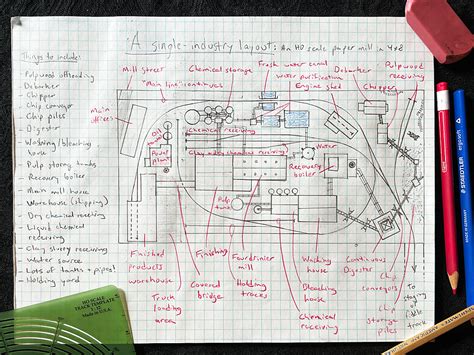 A single-industry layout: An HO scale paper mill in 4x8
Things to include:
- Pulpwood offloading
- Debarker
- Chipper
- Chip conveyor
- Chip piles
- Digester
- Washing/bleaching house
- Pulp storage tanks
- Recovery boiler
- Main mill house
- Warehouse (shipping)
- Dry chemical receiving
- Liquid chemical
receiving
- Clay slurry receiving
- Water source
- Lots of tanks + pipes!
- Holding yard
Mill street
"Main line" continues
Chemical storage
Fresh water canal
Water purification
Engine shed
Debarker
Pulpwood
receiving
Chipper
Main
office
Oil
tank
Power
plant
Chemical receiving
Clay and chemical receiving
Water
Recovery
boiler
Pulp
tanks
Finished
products
warehouse
Truck
loading
area
Finishing
Covered
bridge
Fourdrinier
mill
Holding
tracks
Washing
house
Bleaching
house
Chemical
receiving
Continuous
Digester
Chip
conveyors
Chip
Storage
piles
To
staging
or fiddle
track
HO SCALE
TRACK TEMPLATE
Made in U.S.A.
STAEDTLER
ergosoft